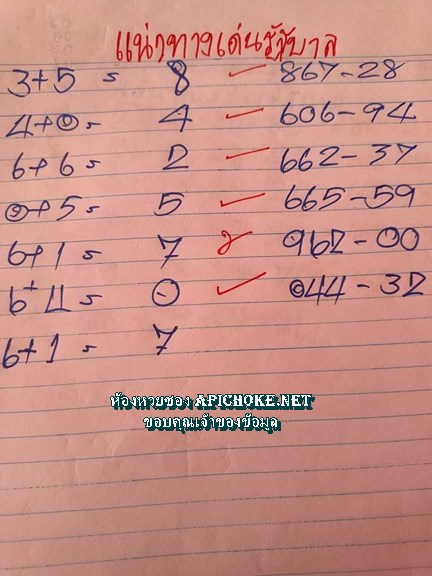 แนวทางเด่นรัฐบาล
3+5 = 8 ✓ 867-28
4+0= 4 ✓ 606-94
6+6= 2 ✓ 662-37
0+5= 5 ✓ 665-59
6+1= 7 x 962-00
6+4= 0 ✓ 044-32
6+1= 7
ห้องหวยซอง APICHOKE.NET
ขอบคุณเจ้าของข้อมูล